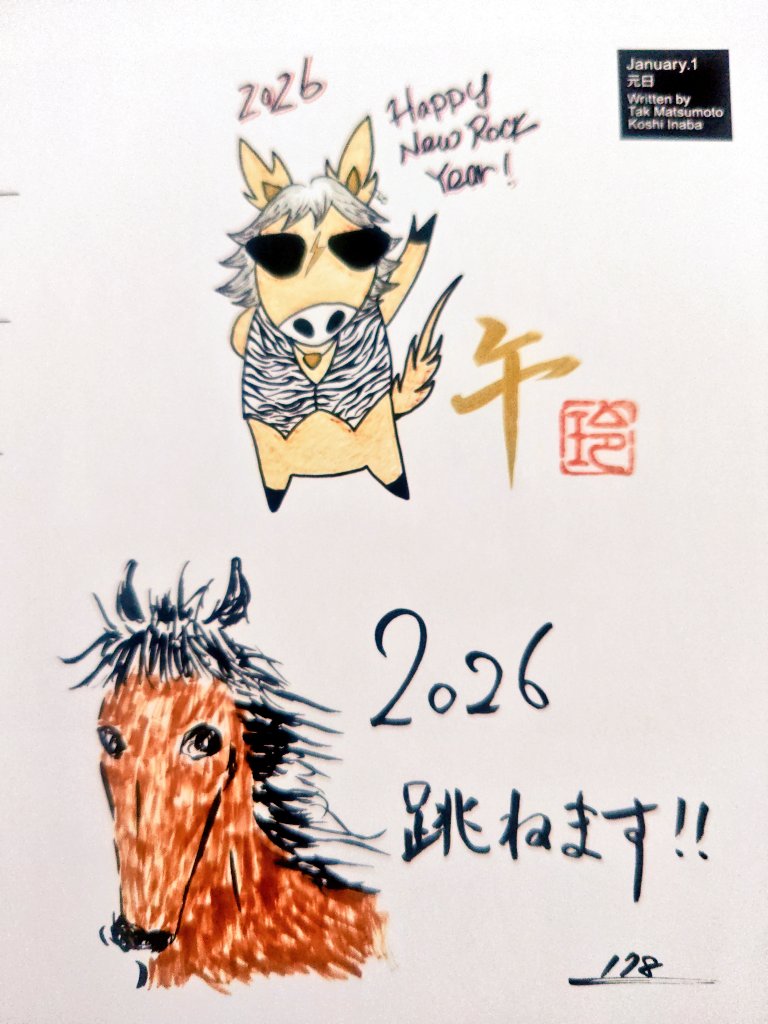 2026
Happy
New Rock
Year!
January.1
元日
Written by
Tak Matsumoto
Koshi Inaba
午
玲
2026
跳ねます!!
178